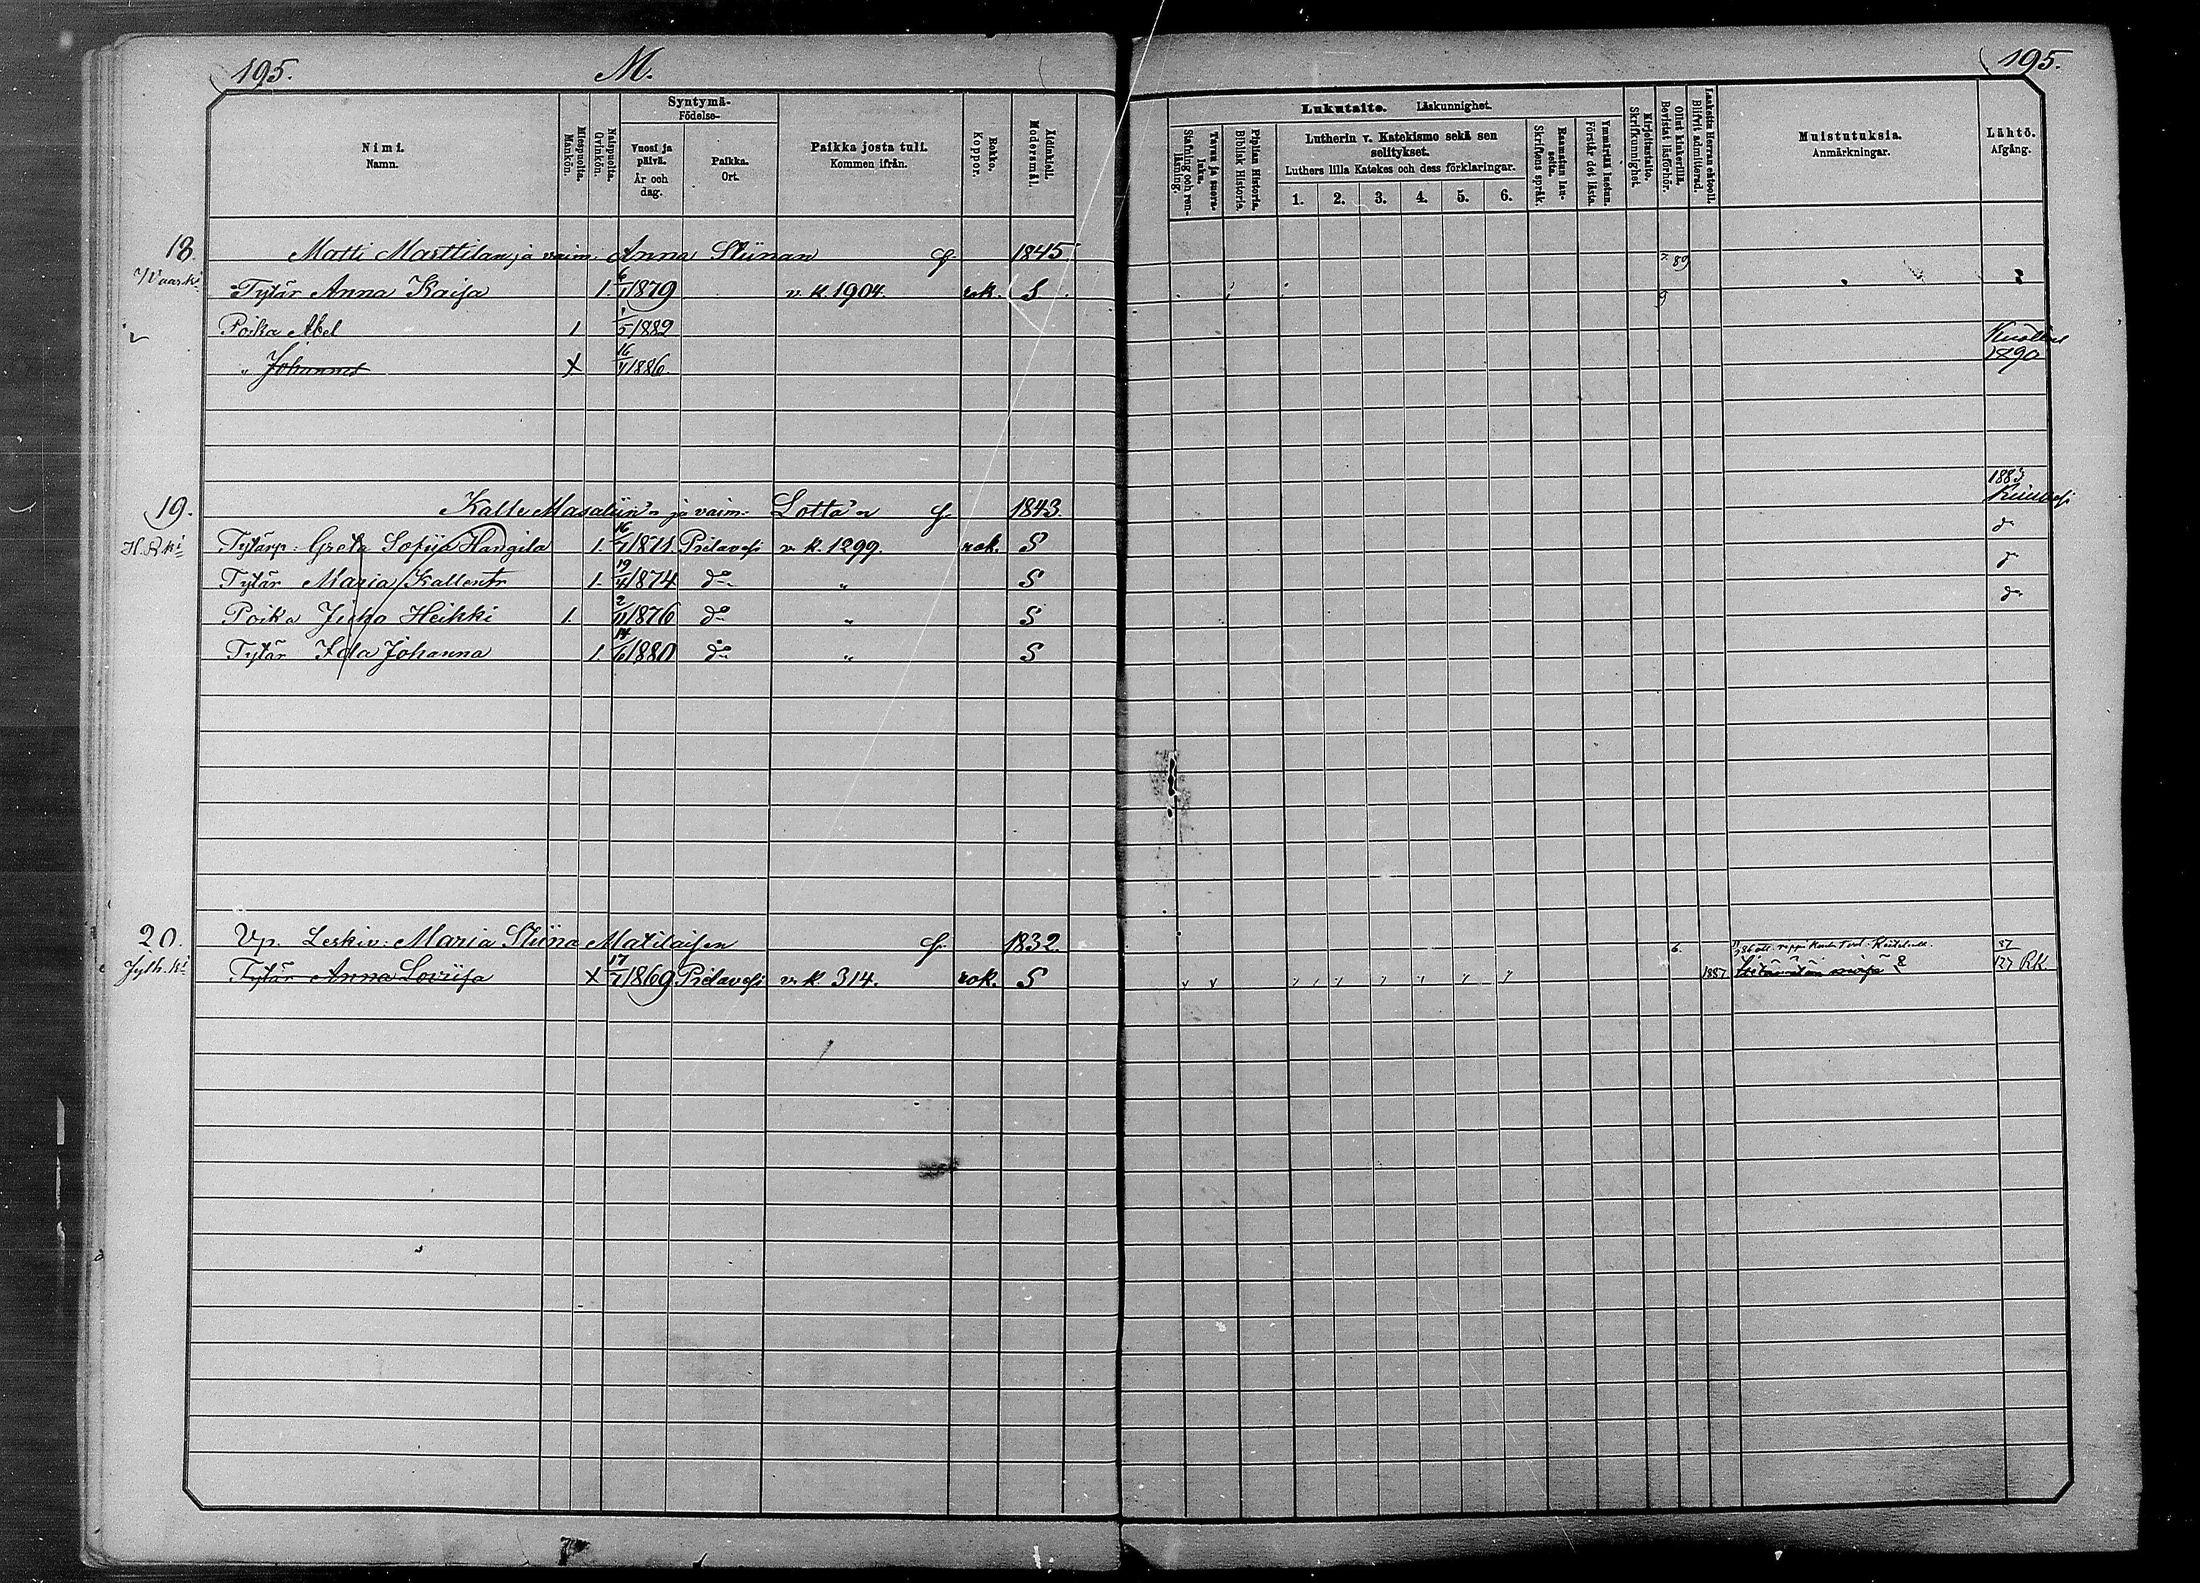 195.
M.
195.
Nimi.
Namn.
Miespuolia.
Mankön.
Naispuolia.
Qvinkön.
Syntymä-
Födelse-
Vuosi ja
päivä.
År och
dag.
Paikka.
Ort.
Paikka josta tuli.
Kommen ifrån.
Rokko.
Koppor.
Äidinkieli.
Modersmål.
Lukutaito. Läskunnighet.
Tavaa ja suora-
luku.
Stafning och ren-
läsning.
Piplian Historia.
Biblisk Historia.
Lutherin v. Katekismo sekä sen
selitykset.
Luthers lilla Katekes och dess förklaringar.
1. 2. 3. 4. 5. 6.
Raamatun lau-
seita.
Skriftens språk.
Ymmärtää luetun.
Förstår det lästa.
Kirjoitustaito.
Skrifkunnighet.
Ollut kinkerillä.
Bevistat läsförhör.
Laskettu Herran ehtooll.
Blifvit admitterad.
Muistutuksia.
Anmärkningar.
Lähtö.
Afgång.
18. Matti Marttilan ja vaim. Anna Stiinan 1845 89
Tytär Anna Kaisa 1. 6 1879 v. k. 1904. rok. S 9
Poika Abel 1 1/5 1882
" Johannes X 16/4 1886. 1890
1883
19. Kalle Masalin'n ja vaim: Lotta'n 1843.
Tytärp: Greta Sofiia Hangila 1. 16/7 1871. Pielavesi v. k. 1299. rok. S
Tytär Maria Kallentr 1. 19/4 1874 do " S
Poika Juho Heikki 1. 2/11 1876 do " S
Tytär Ida Johanna 1. 14 1880 do " S
20. Vp. Leskiv: Maria Stiina Matilaisen 1832. 6.
Tytär Anna Loviisa X 17/7 1869 Pielavesi v. k. 314. rok. S 1887 127 RK.